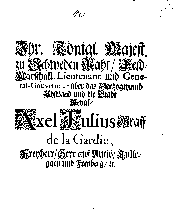 Ihr. Königl. Majest.
zu Schweden Raht / Feld-
Marschall-Lieutenant und Gene-
ral-Gouverneur über das Hertzogthumb
Ehstland und die Stadt
Reval
Axel Julius Graff
de la Gardie,
Freyherr / Herr
und Freyherr / &c.